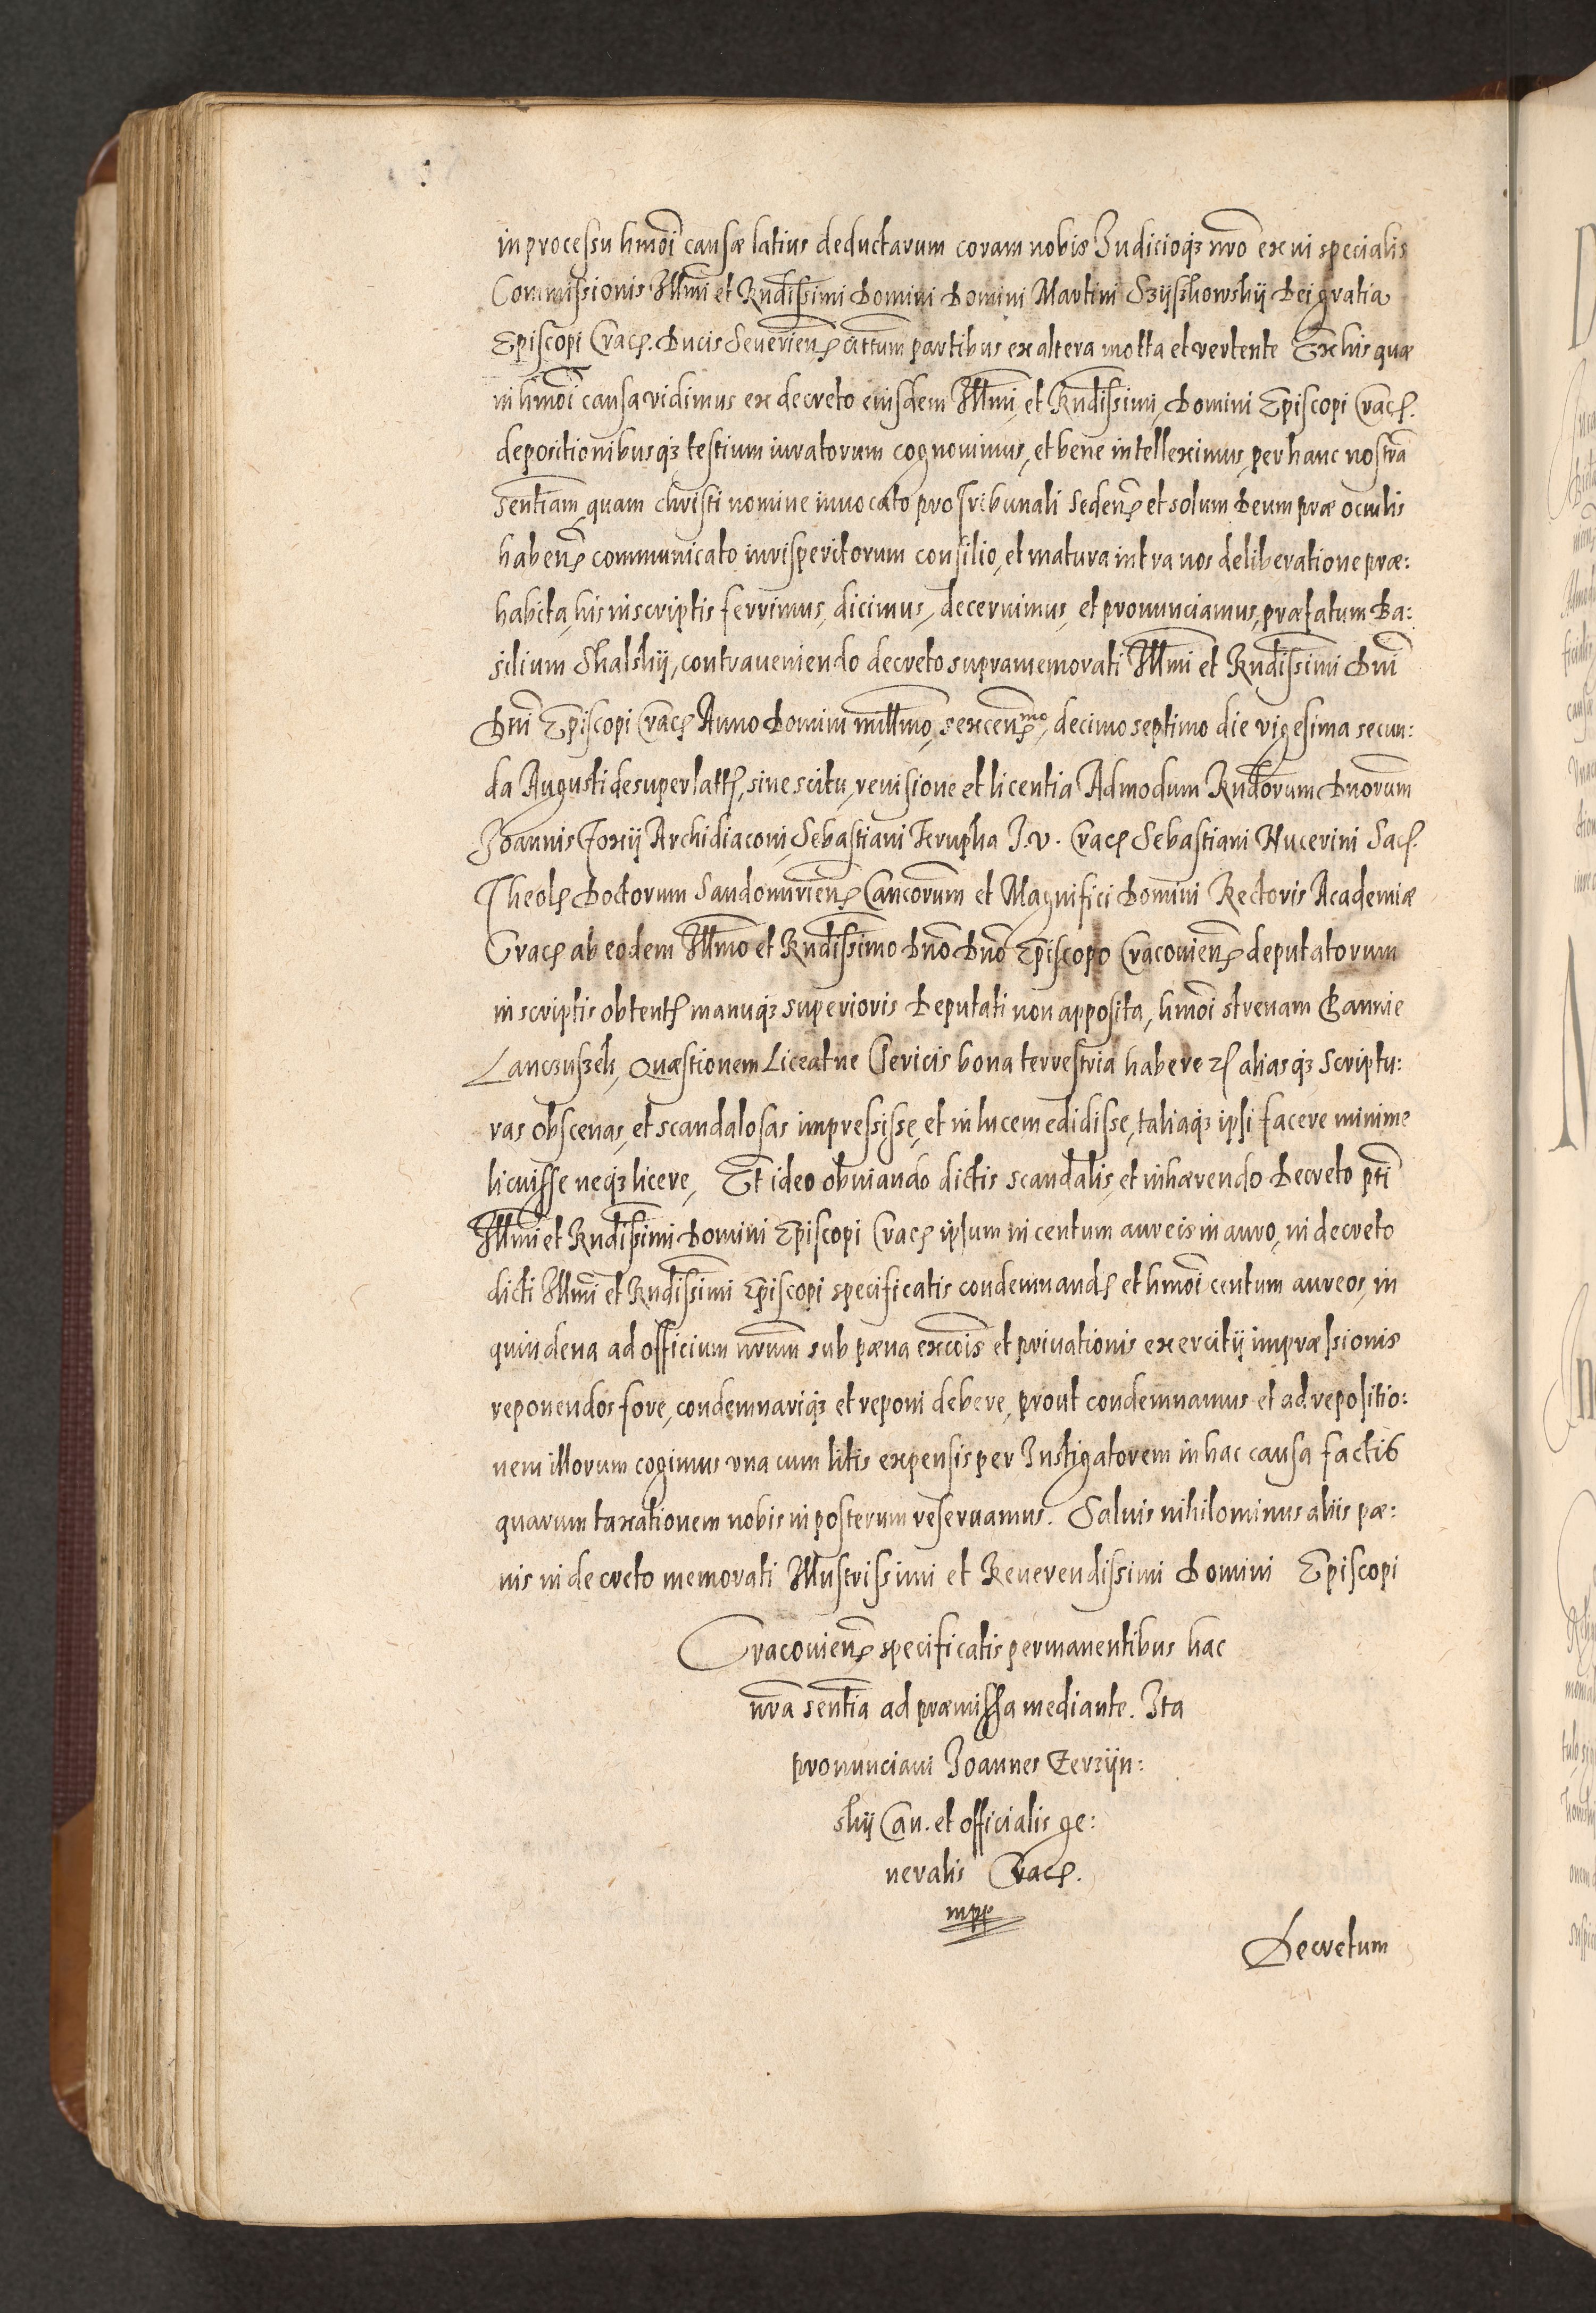 in processu hmõi causæ latius deductarum coram nobis Judicioq₃ nr̃o ex ui specialis
Commissionis Illmi et Rndissimi Domini Domini Martini Szyszkowskij Dei gratia
Episcopi Crac. Ducis Seuerien. partibus ex altera mota et vertente Ex his quæ
in hmõi causa vidimus ex decreto eiusdem Illmi, et Rndissimi, Domini Episcopi Crac.
depositionibusq₃ testium iuratorum cognouimus, et bene intelleximus, per hanc nostrã
sentiam, quam christi nomine inuocato pro Tribunali seden. et solum Deum præ oculis
haben. communicato iurisperitorum consilio, et matura intra nos deliberatione præ:
habita, his in scriptis ferrimus, dicimus, decernimus, et pronunciamus, præfatum Ba:
silium Skalskij, contraueniendo decreto supramemorati Illmi et Rndissimi Dni
Dni Episcopi Crac. Anno Domini millmo, sexcen.mo, decimo septimo die vigesima secun:
da Augusti desuper latt., sine scitu, reuisione et licentia Admodum Rndorum Dnorum
Joannis Foxij Archidiaconi, Sebastiani Krupka J. V. Crac. Sebastiani Nucerini Sac.
Theol. Doctorum Sandomirien. Cancorum et Magnifici Domini Rectoris Academiæ
Crac. ab eodem Illmo et Rndissimo Dno Dno Episcopo Cracouien. deputatorum
in scriptis obtent. manuq₃ superioris Deputati non apposita, hmõi strenam Gannie
Lanczuszek, Quæstionem Liceatne Clericis bona terrestria habere etc. aliasq₃ scriptu:
ras obscenas, et scandalosas impressisse, et in lucem edidisse, taliaq₃ ipsi facere minime
licuisse neq₃ licere, Et ideo obuiando dictis scandalis, et inhærendo Decreto pti
Illmi et Rndissimi Domini Episcopi Crac. ipsum in centum aureis in auro, in decreto
dicti Illmi et Rndissimi Episcopi specificatis condemnand. et hmõi centum aureos, in
quindena ad officium nrum sub pæna excois et priuationis exercitij impræssionis
reponendos fore, condemnariq₃ et reponi debere, prout condemnamus et ad repositio:
nem illorum cogimus vna cum litis expensis per Instigatorem in hac causa factis
quarum taxationem nobis in posterum reseruamus. Saluis nihilominus aliis pæ:
nis in decreto memorati Illustrissimi et Reuerendissimi Domini Episcopi
Cracouien. specificatis permanentibus hac
nra sentia ad præmissa mediante. Ita
pronunciaui Joannes Gerzÿn:
skij Can. et officialis ge:
neralis Crac.
mpp
Decretum